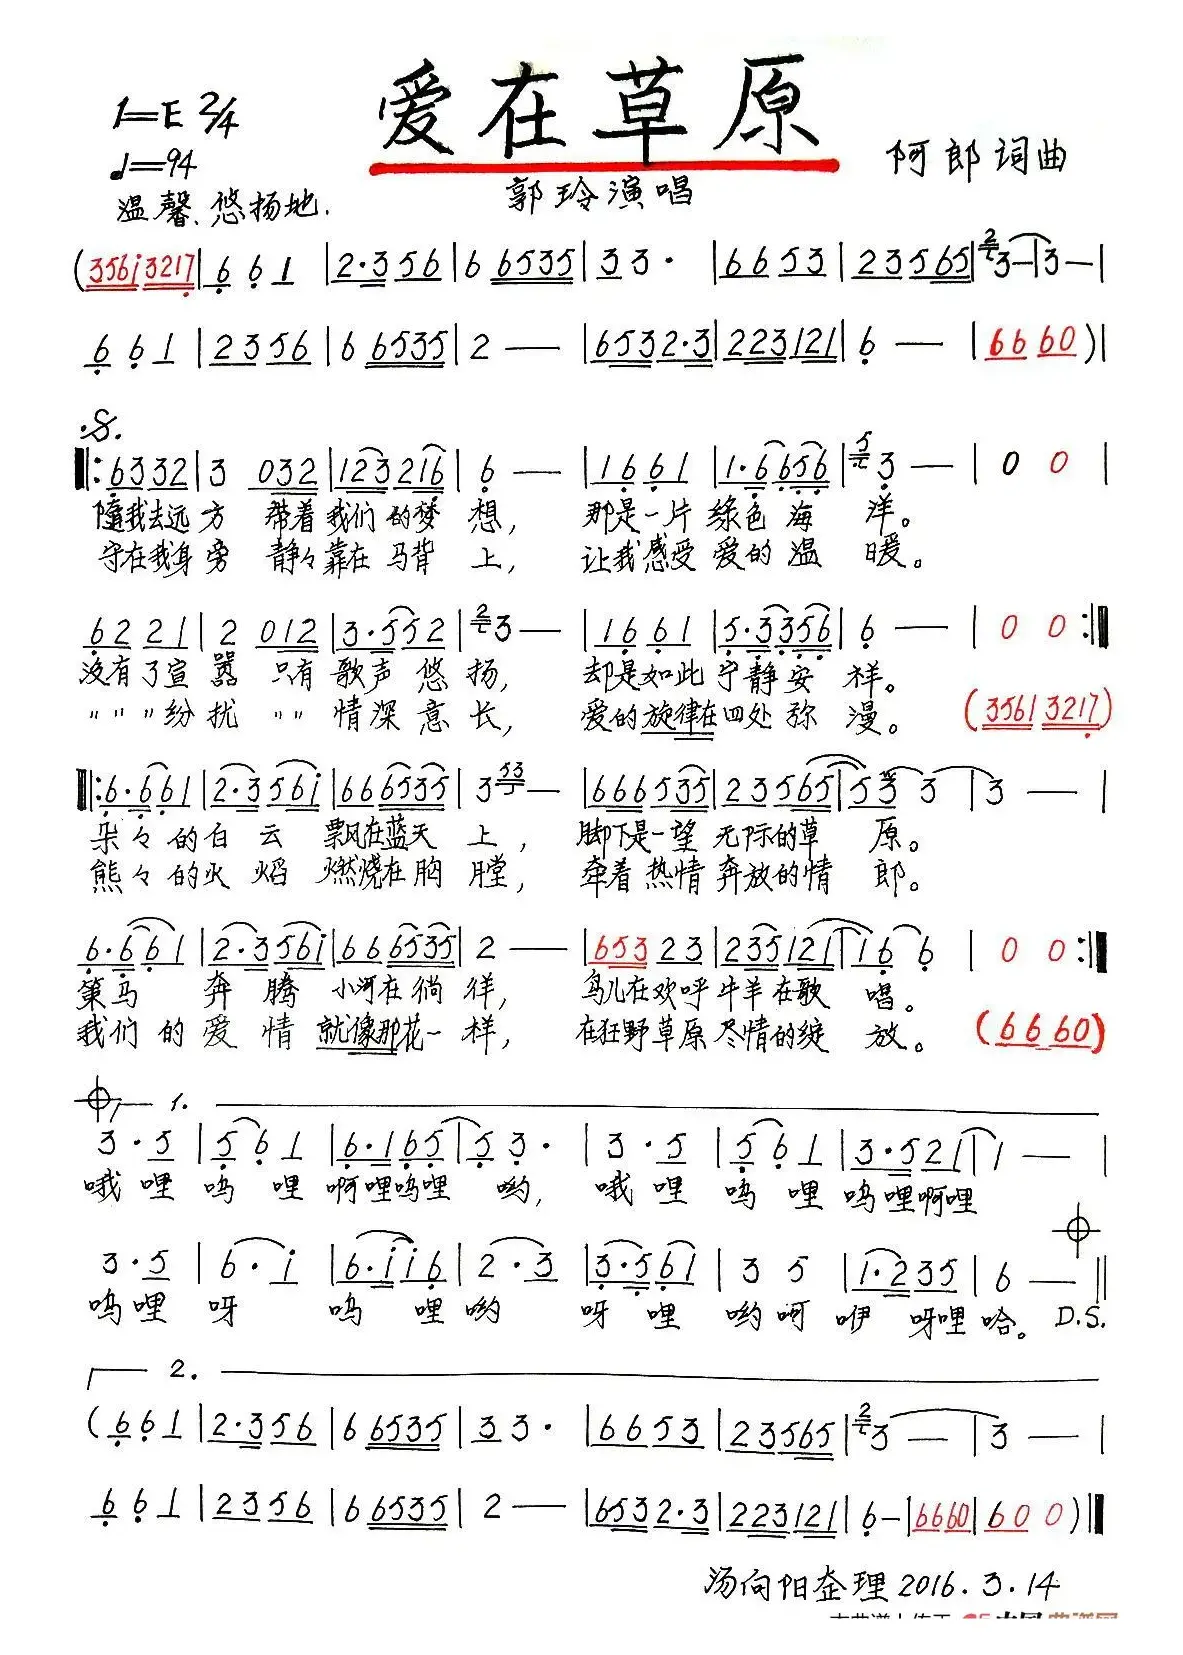 爱在草原
1=E 2/4
♩=94
阿郎词曲
温馨、悠扬地.
郭玲演唱
(356i 3217|6 6 1|2·356|6 6535|3 3·|6653|23565|3—|3—|
6 6 1|2356|6 6535|2—|6532·3|223121|6—|6660)|
𝄋
‖:6332|3 032|123216|6—|1661|1·6656|3—|0 0|
随我去远方 带着我们的梦想, 那是一片绿色海洋。
守在我身旁 静々靠在马背上, 让我感受爱的温暖。
6221|2 012|3·552|3—|1661|5·3356|6—|0 0:‖
没有了宣嚣 只有歌声悠扬, 却是如此宁静安祥。
" " "纷扰 " "情深意长, 爱的旋律在四处弥漫。 (3561 3217)
‖:6·661|2·356i|666535|3—|666535|23565|53 3|3—|
朵々的白云 飘在蓝天上, 脚下是一望无际的草原。
熊々的火焰 燃烧在胸膛, 牵着热情奔放的情郎。
6·661|2·356i|666535|2—|65323|235121|16 6|0 0:‖
策马奔腾 小河在徜徉, 鸟儿在欢呼牛羊在歌唱。
我们的爱情 就像那花一样, 在狂野草原尽情的绽放。 (6660)
1.
3·5|5 6 1|6·165|5 3·|3·5|5 6 1|3·521|1—|
哦哩呜哩啊哩呜哩哟, 哦哩呜哩呜哩啊哩
3·5|6·i|6·ii6|2·3|3·561|3 5|1·235|6—‖
呜哩呀呜哩哟呀哩哟呵咿呀哩哈。 D.S.
2.
(661|2·356|66535|3 3·|6653|23565|3—|3—|
6 6 1|2356|66535|2—|6532·3|223121|6—|6660|600)‖
汤向阳整理2016.3.14